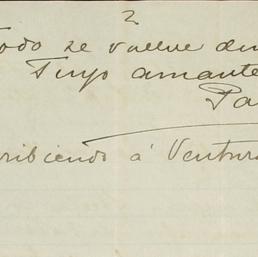 2
Todo se vuelve din
Tuyo amante
Pa
ribiendo á Ventura